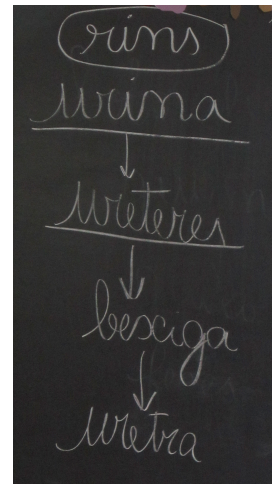 rins
urina
ureteres
bexiga
uretra